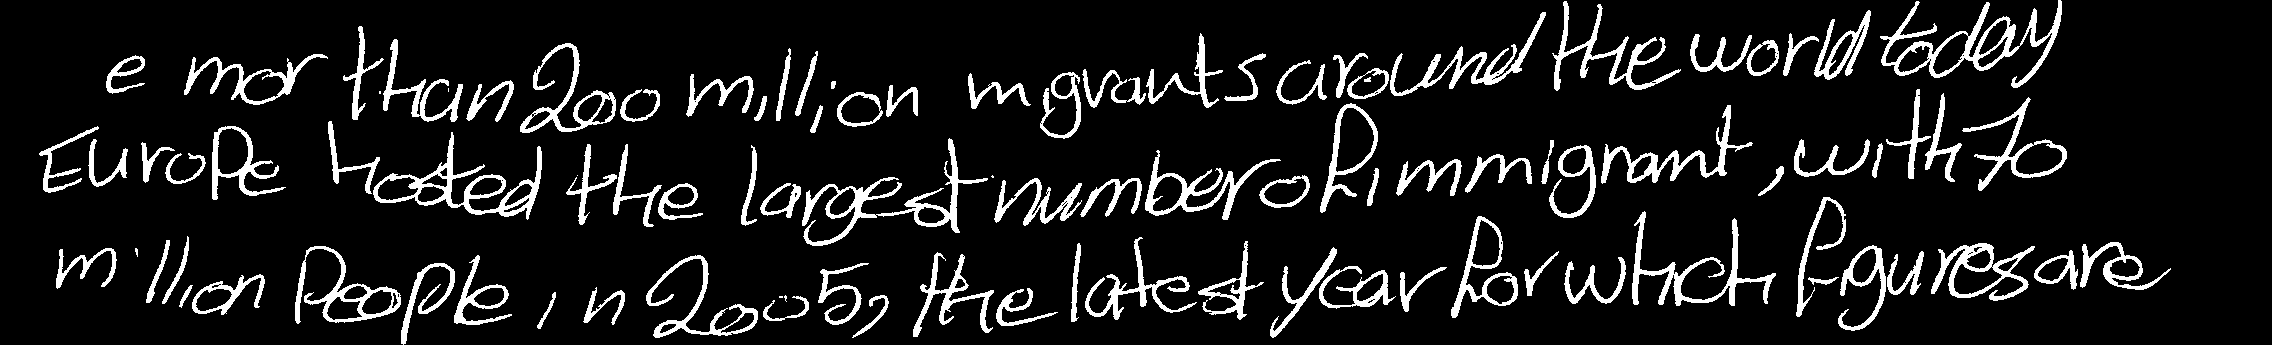 e mor than 200 million migrants around the world today
Europe hosted the largest number of immigrant, with 70
million people in 2005, the latest year for which figures are